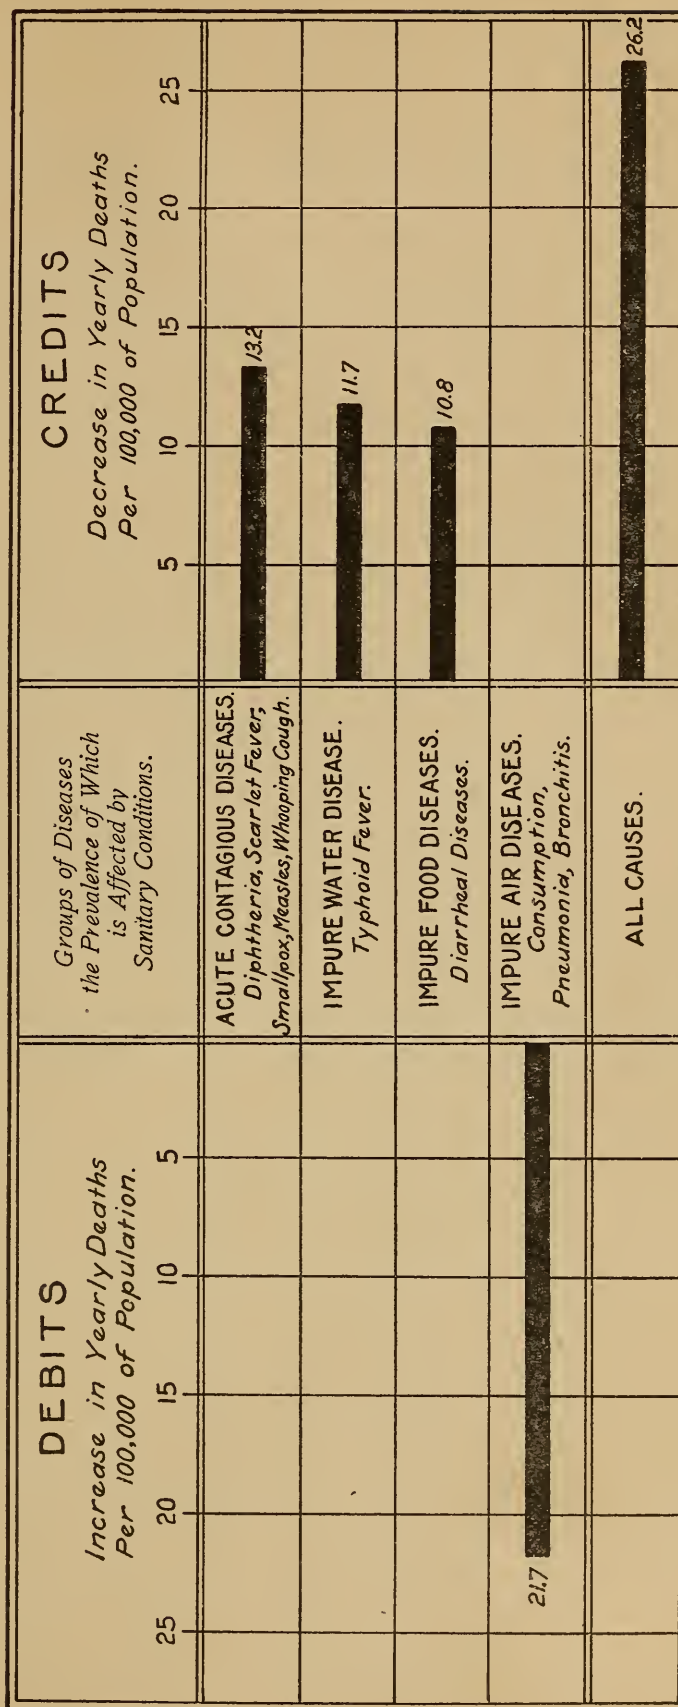 DEBITS
Increase in Yearly Deaths
Per 100,000 of Population.
25 20 15 10 5
Groups of Diseases
the Prevalence of Which
is Affected by
Sanitary Conditions.
CREDITS
Decrease in Yearly Deaths
Per 100,000 of Population.
5 10 15 20 25
ACUTE CONTAGIOUS DISEASES.
Diphtheria, Scarlet Fever,
Smallpox, Measles, Whooping Cough.
13.2
IMPURE WATER DISEASE.
Typhoid Fever.
11.7
IMPURE FOOD DISEASES.
Diarrheal Diseases.
10.8
21.7
IMPURE AIR DISEASES.
Consumption,
Pneumonia, Bronchitis.
ALL CAUSES.
26.2